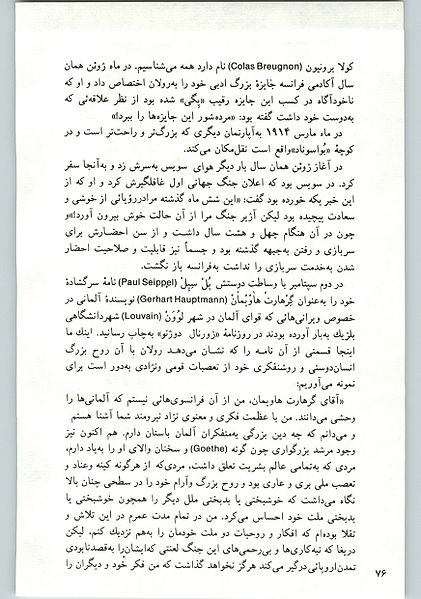 کولا برونیون (Colas Breugnon) نام دارد همه می‌شناسیم. در ماه ژوئن همان
سال آکادمی فرانسه جایزهٔ بزرگ ادبی خود را به‌رولان اختصاص داد و او که
ناخودآگاه در کسب این جایزه رقیب «پگی» شده بود از نظر علاقه‌ئی که
به‌دوست خود داشت گفته بود: «مرده‌شور این جایزه‌ها را ببرد!»
در ماه مارس ۱۹۱۴ به‌آپارتمان دیگری که بزرگ‌تر و راحت‌تر است و در
کوچهٔ «بواسوناد» واقع است نقل‌مکان می‌کند.
در آغاز ژوئن همان سال بار دیگر هوای سویس به‌سرش زد و به‌آنجا سفر
کرد. در سویس بود که اعلان جنگ جهانی اول غافلگیرش کرد و او که از
این خبر یکه خورده بود گفت: «این شش ماه گذشته مرادررؤیائی از خوشی و
سعادت پیچیده بود لیکن آژیر جنگ مرا از آن حالت خوش بیرون آورد!»و
چون در آن هنگام چهل و هشت سال داشت و از سن احضارش برای
سربازی و رفتن به‌جبهه گذشته بود و جسماً نیز قابلیت و صلاحیت احضار
شدن به‌خدمت سربازی را نداشت به‌فرانسه باز نگشت.
در دوم سپتامبر با وساطت دوستش پُلْ سیپِلْ (Paul Seippel) نامهٔ سرگشادهٔ
خود را به‌عنوان گِرْهارتْ هاوُپْمانْ (Gerhart Hauptmann) نویسندهٔ آلمانی در
خصوص ویرانی‌هائی که قوای آلمان در شهر لوُوَنْ (Louvain) شهردانشگاهی
بلژیك به‌بار آورده بودند در روزنامهٔ «ژورنال دوژنو» به‌چاپ رسانید. اینك ما
اینجا قسمتی از آن نامـه را که نشـان می‌دهـد رولان با آن روح بزرگ
انسان‌دوستی و روشنفکری خود از تعصبات قومی ونژادی به‌دور است برای
نمونه می‌آوریم:
«آقای گرهارت هاوپمان، من از آن فرانسوی‌هائی نیستم که آلمانی‌ها را
وحشی می‌دانند. من با عظمت فکری و معنوی نژاد نیرومند شما آشنا هستم
و می‌دانم که چه دین بزرگی به‌متفکران آلمان باستان دارم. هم اکنون نیز
وجود مرشد بزرگواری چون گوته (Goethe) و سخنان والای او را به‌یاد دارم،
مردی که به‌تمامی عالم بشریت تعلق داشت، مردی‌که ازهرگونه کینه وعناد و
تعصب ملی بری و عاری بود و روح بزرگ وآرام خود را در سطحی چنان بالا
نگاه می‌داشت که خوشبختی یا بدبختی ملل دیگر را همچون خوشبختی یا
بدبختی ملت خود احساس می‌کرد. من در تمام مدت عمرم در این تلاش و
تقلا بوده‌ام که افکار و روحیات دو ملت خودمان را به‌هم نزدیك کنم، لیکن
دریغا که تبه‌کاری‌ها و بی‌رحمی‌های این جنگ لعنتی که‌ایشان‌را به‌قصدنابودی
تمدن‌اروپائی درگیر می‌کند هرگز نخواهد گذاشت که من فکر خُود و دیگران را
۷۶